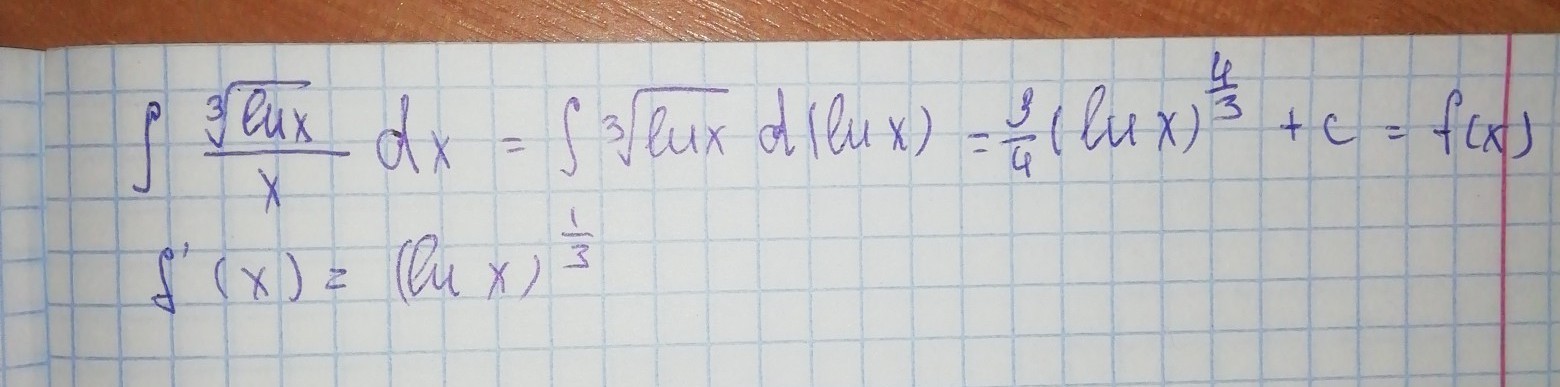 ∫ ∛(ln x) / x dx = ∫ ∛(ln x) d(ln x) = 3/4 (ln x)^(4/3) + c = f(x)
f'(x) = (ln x)^(1/3)